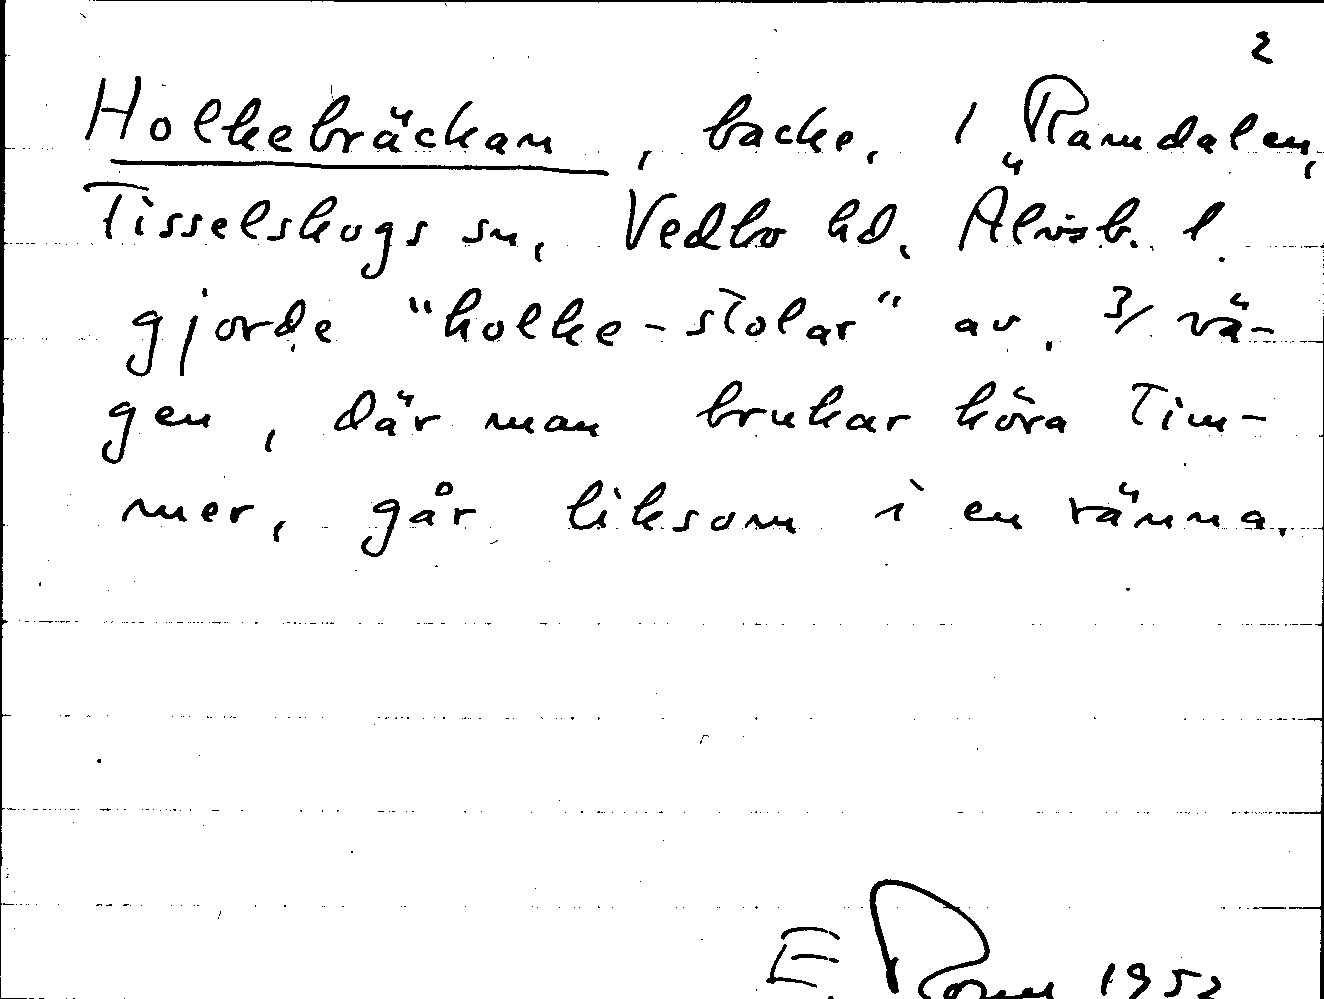 2
Holkebräckan, backe, 1 Ramdalen,
Tisselskogs sn, Vedbo hd. Älvsb. l.
gjorde "holke-stolar" av. 3/ vä-
gen, där man brukar köra Tim-
mer, går liksom i en ränna.
E. 1952